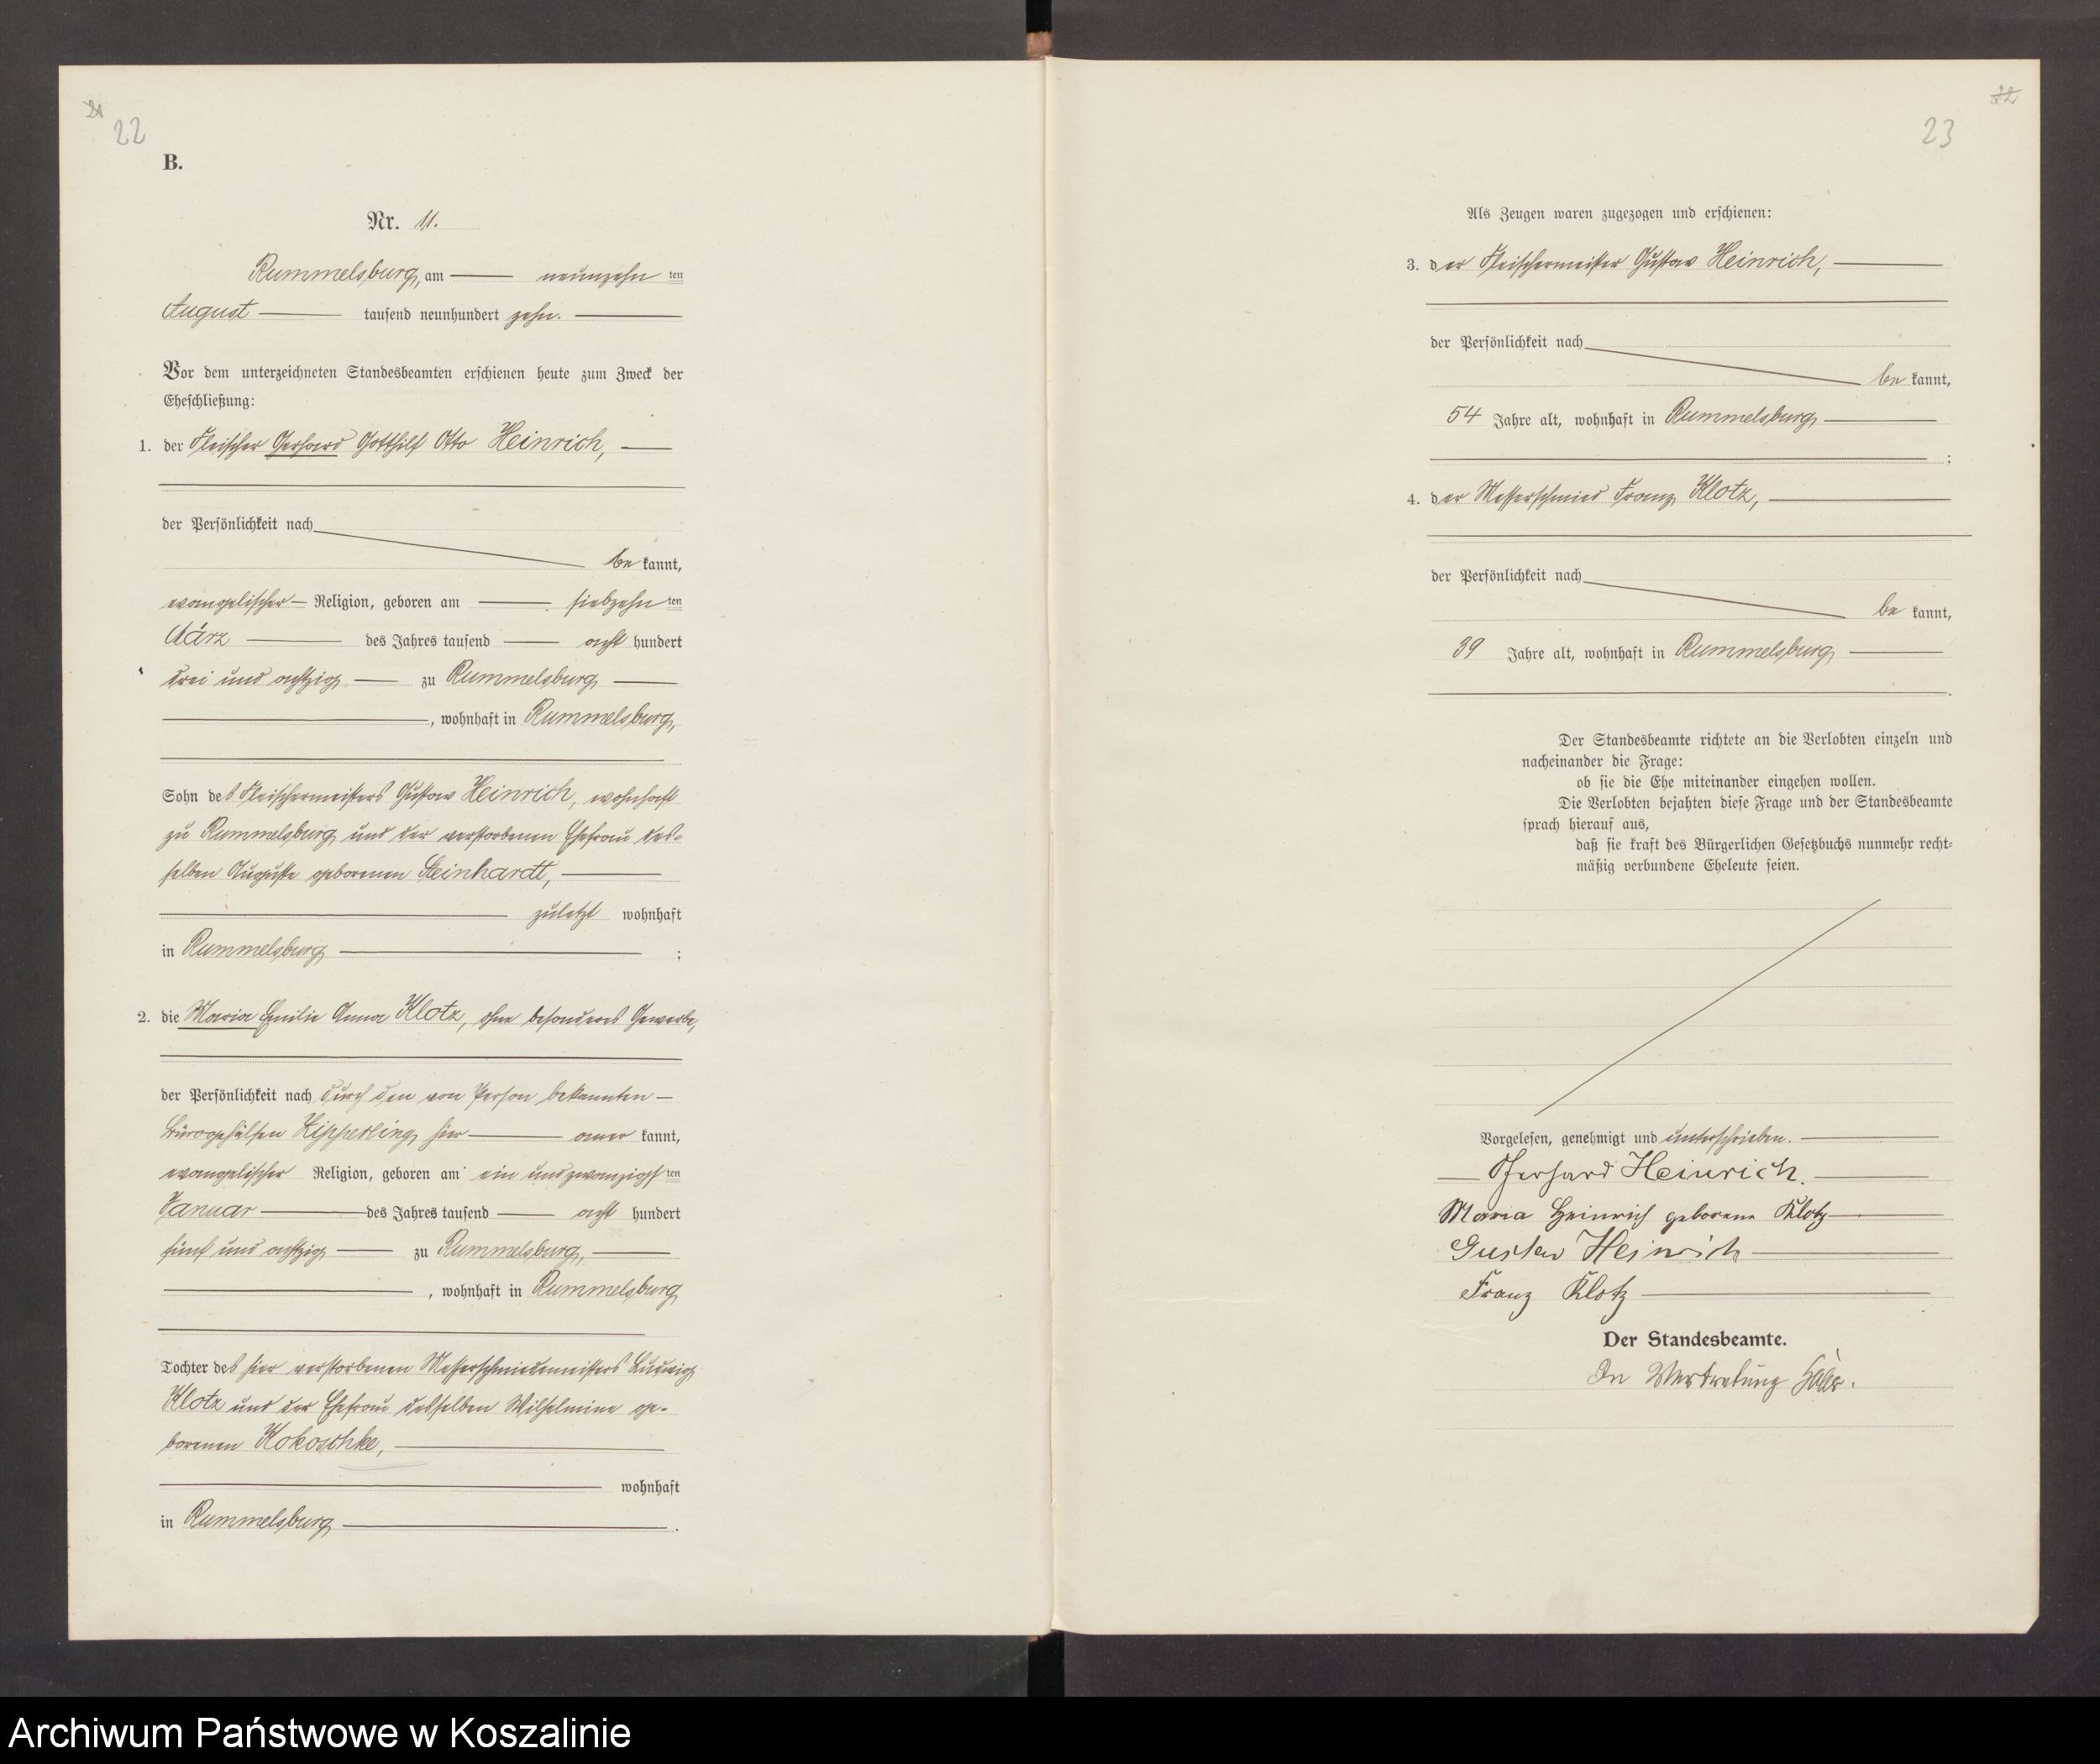 21
22
B.
Nr. 11.
Rummelsburg, am neunzehn ten
August tausend neunhundert zehn.
Vor dem unterzeichneten Standesbeamten erschienen heute zum Zweck der
Eheschließung:
1. der Fleischer Gerhard Gotthilf Otto Heinrich,
der Persönlichkeit nach
be kannt,
evangelischer Religion, geboren am siebzehn ten
März des Jahres tausend acht hundert
drei und achtzig zu Rummelsburg
, wohnhaft in Rummelsburg,
Sohn des Fleischermeisters Gustav Heinrich, wohnhaft
zu Rummelsburg und der verstorbenen Ehefrau des=
selben Auguste geborenen Steinhardt,
zuletzt wohnhaft
in Rummelsburg ;
2. die Maria Emilie Anna Klotz, ohne besonderes Gewerbe,
der Persönlichkeit nach durch den von Person bekannten
Bürogehülfen Zipperling hier aner kannt,
evangelischer Religion, geboren am ein und zwanzigsten
Januar des Jahres tausend acht hundert
fünf und achtzig zu Rummelsburg,
, wohnhaft in Rummelsburg
Tochter des hier verstorbenen Messerschmiedemeisters Ludwig
Klotz und der Ehefrau desselben Wilhelmine ge-
borenen Kokoschke,
wohnhaft
in Rummelsburg .
22
23
Als Zeugen waren zugezogen und erschienen:
3. der Fleischermeister Gustav Heinrich,
der Persönlichkeit nach
be kannt,
54 Jahre alt, wohnhaft in Rummelsburg
;
4. der Messerschmied Franz Klotz,
der Persönlichkeit nach
be kannt,
39 Jahre alt, wohnhaft in Rummelsburg
.
Der Standesbeamte richtete an die Verlobten einzeln und
nacheinander die Frage:
ob sie die Ehe miteinander eingehen wollen.
Die Verlobten bejahten diese Frage und der Standesbeamte
sprach hierauf aus,
daß sie kraft des Bürgerlichen Gesetzbuchs nunmehr recht=
mäßig verbundene Eheleute seien.
Vorgelesen, genehmigt und unterschrieben.
Gerhard Heinrich.
Maria Heinrich geborene Klotz
Gustav Heinrich
Franz Klotz
Der Standesbeamte.
In Vertretung
Archiwum Państwowe w Koszalinie